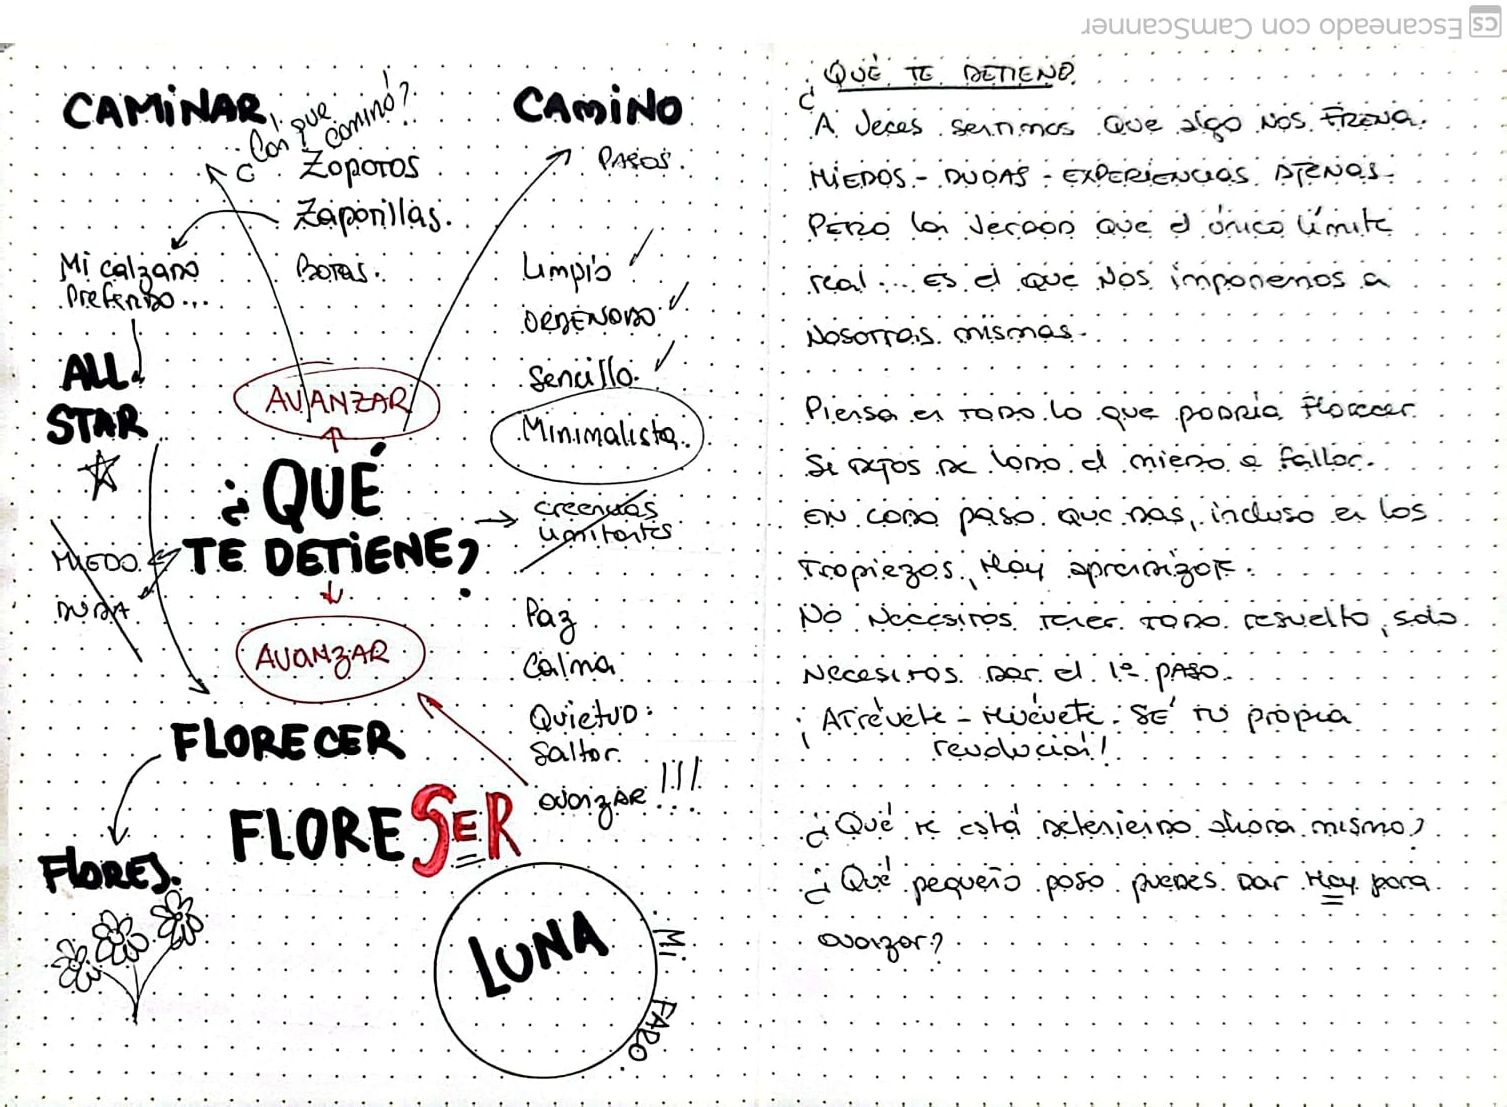 Escaneado con CamScanner
CAMINAR
¿Con que camino?
Zapatos
Zapatillas.
Botas.
Mi calzado
Preferido...
ALL
STAR
CAMINO
PASOS.
Limpio
ORDENADO
Sencillo.
Minimalista.
AVANZAR
¿QUÉ
TE DETIENE?
creencias
limitantes
MIEDO
DUDA
AVANZAR
Paz
Calma
Quietud.
Saltar.
avanzar!!!
FLORECER
FLORESER
FLORES.
LUNA
Mi FARO.
¿QUÉ TE DETIENE?
A veces sentimos que algo nos FRENA.
MIEDOS - DUDAS - EXPERIENCIAS AJENAS.
PERO la verdad que el único límite
real... es el que nos imponemos a
nosotras mismas.
Piensa en TODO lo que podría Florecer
Si dejas de lado el miedo a fallar.
EN cada paso que das, incluso en los
tropiezos, Hay aprendizaje.
NO Necesitas tener TODO resuelto, solo
necesitas dar el 1º PASO.
¡Atrévete - Muévete. SÉ tu propia
revolución!
¿Qué te está deteniendo ahora mismo?
¿Qué pequeño paso puedes dar Hoy para
avanzar?